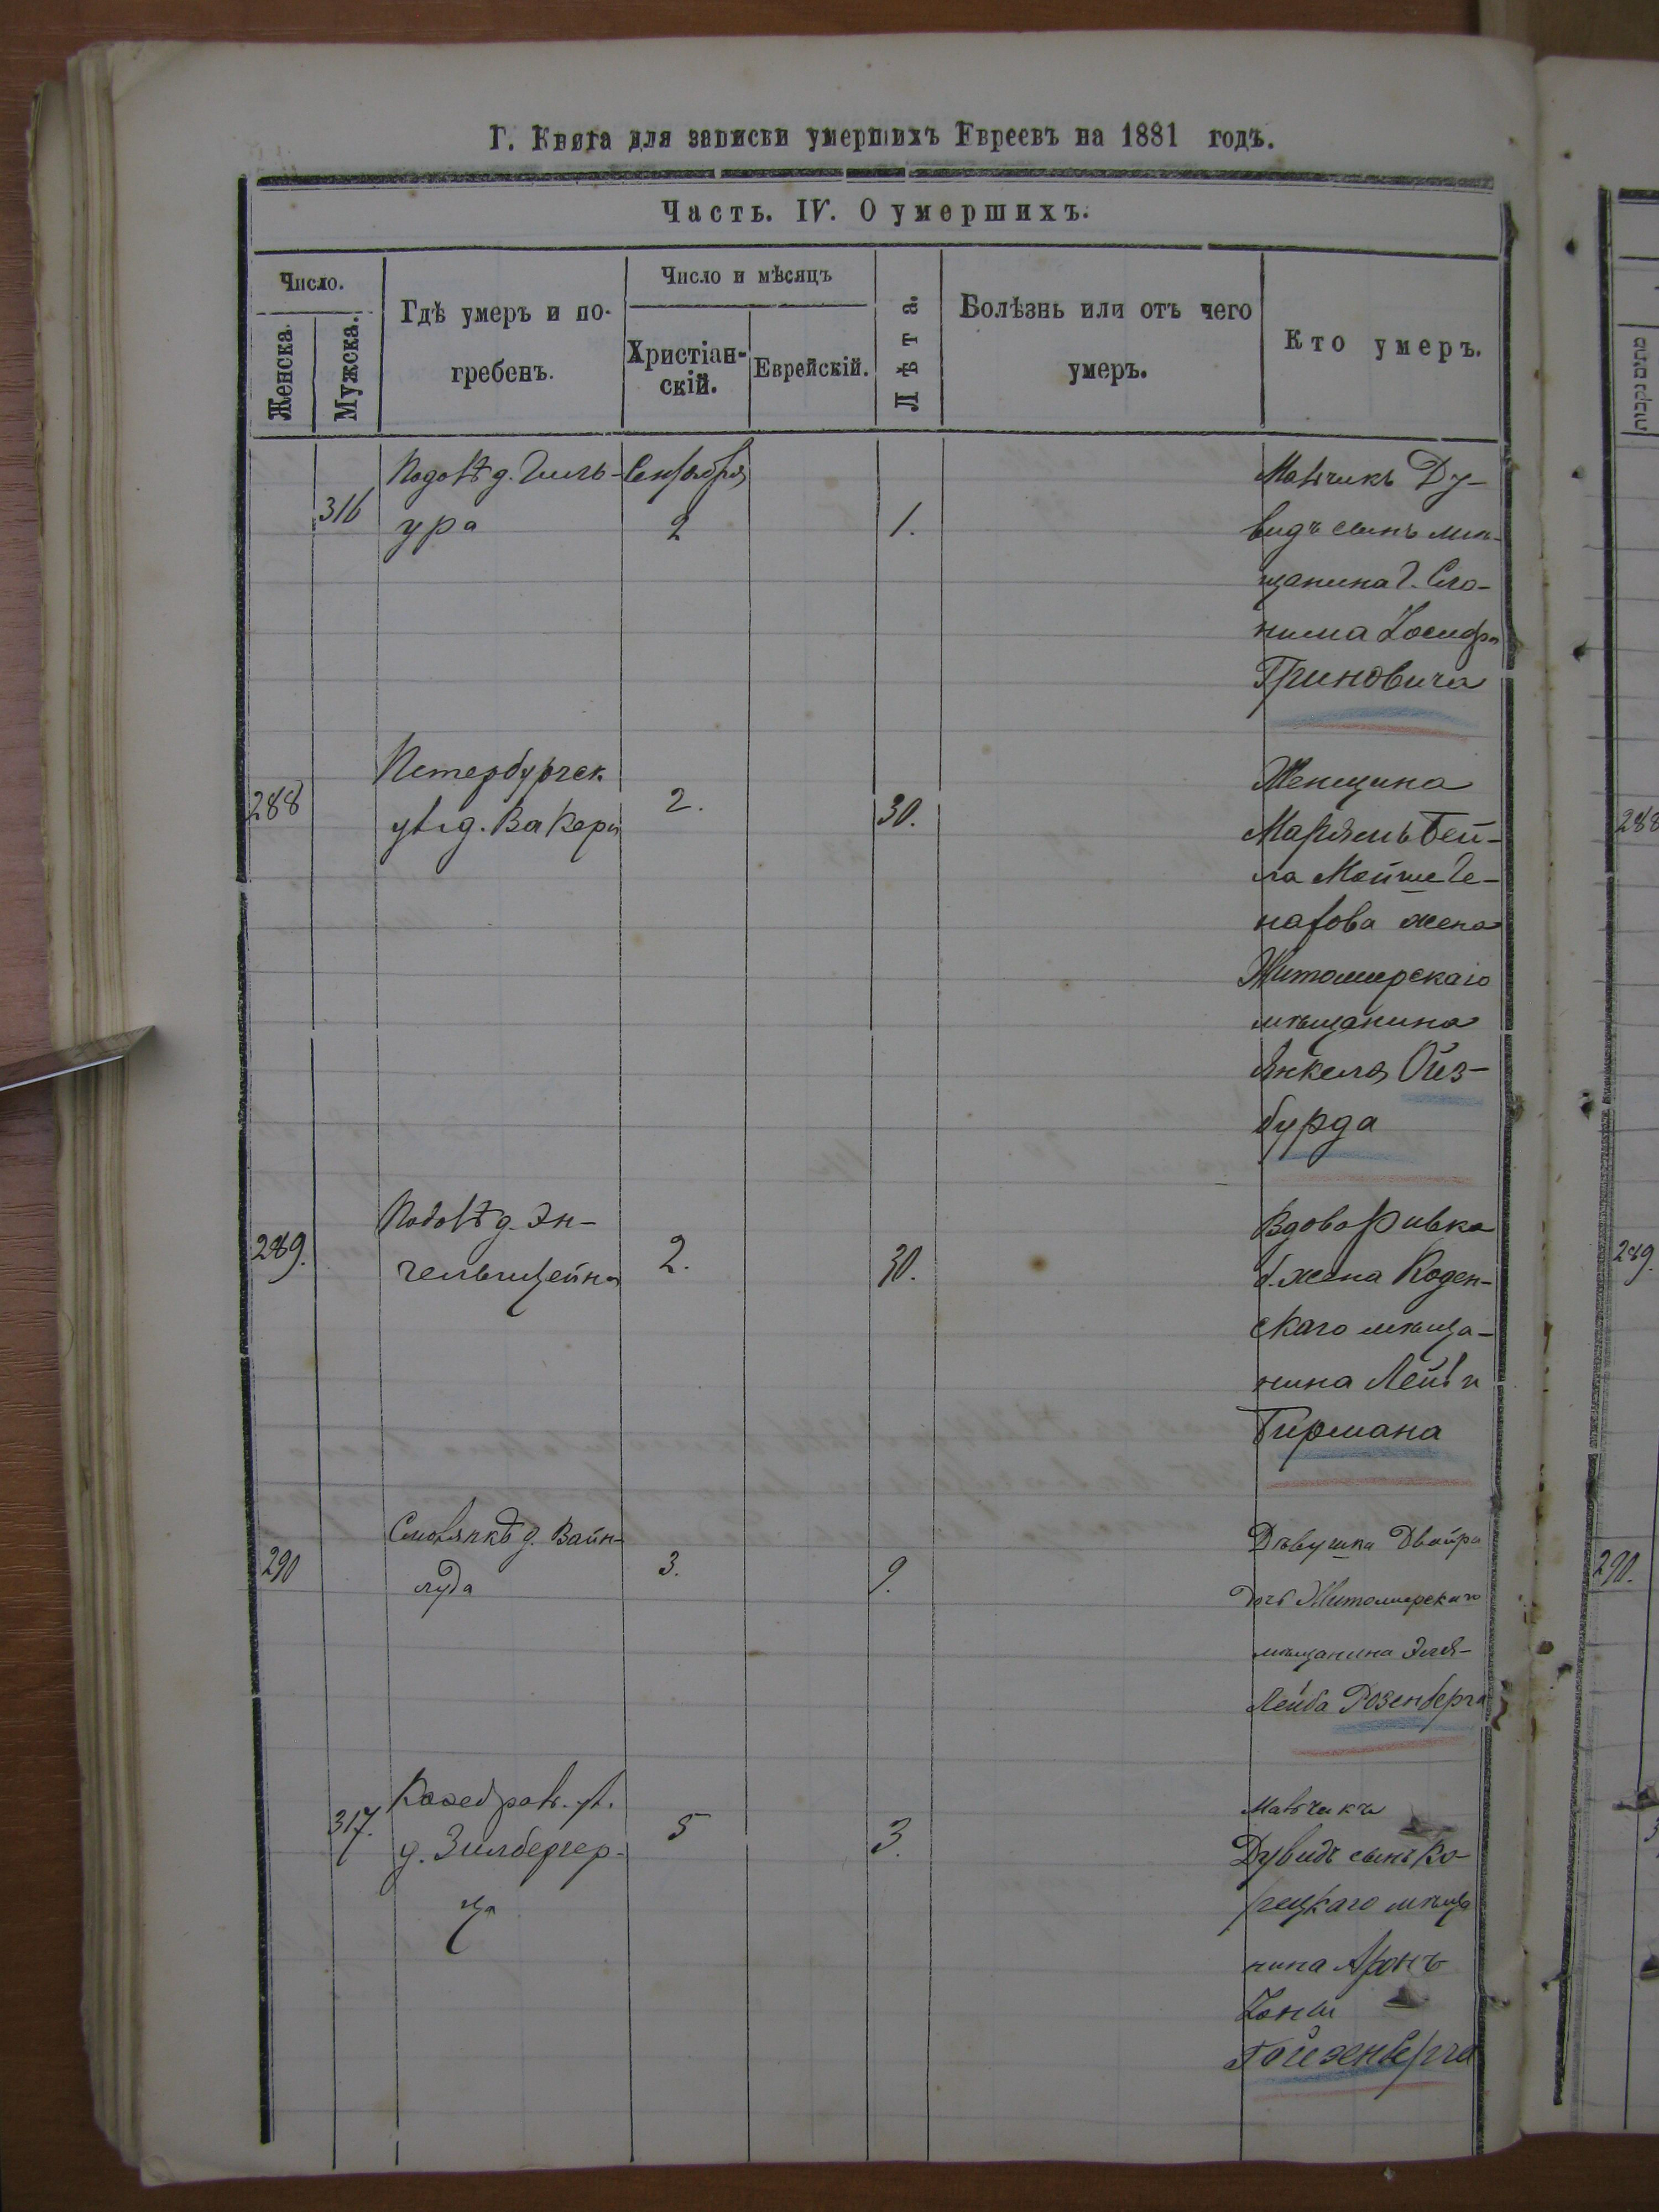 Г. Книга для записки умершихъ Евреевъ на 1881 годъ.
Часть. IV. О умершихъ.
Число.
Женска.
Мужска.
Гдѣ умеръ и по-
гребенъ.
Число и мѣсяцъ
Христіан-
скій.
Еврейскій.
Лѣта.
Болѣзнь или отъ чего
умеръ.
Кто умеръ.
316
д. Гиль-
ура
Сентября
2
1.
Мальчикъ Ду-
видъ сынъ мѣ-
щанина г. Сло-
нима Іосифа
Гриновича
288
Петербургск.
ул. д. Вакера
2.
30.
Женщина
Марьямъ Бей-
ла Мойше
жена
Житомирскаго
мѣщанина
Янкеля Ойз-
бурда
289.
д. Эн-
гельштейна
2.
30.
Вдова Ривка
б. жена Коден-
скаго мѣща-
нина Лейби
Бирмана
290
д. Вайн-
луда
3.
9.
Дѣвушка Двойра
дочь Житомирскаго
мѣщанина Эля-
Лейба Розенберга
317.
Каѳедраль. ул.
д. Зилбергер-
ца
5
3.
Мальчикъ
Дувидъ сынъ Ко-
рецкаго мѣща
нина Аронъ
Іоны
Гойзенберга
288
289.
290.